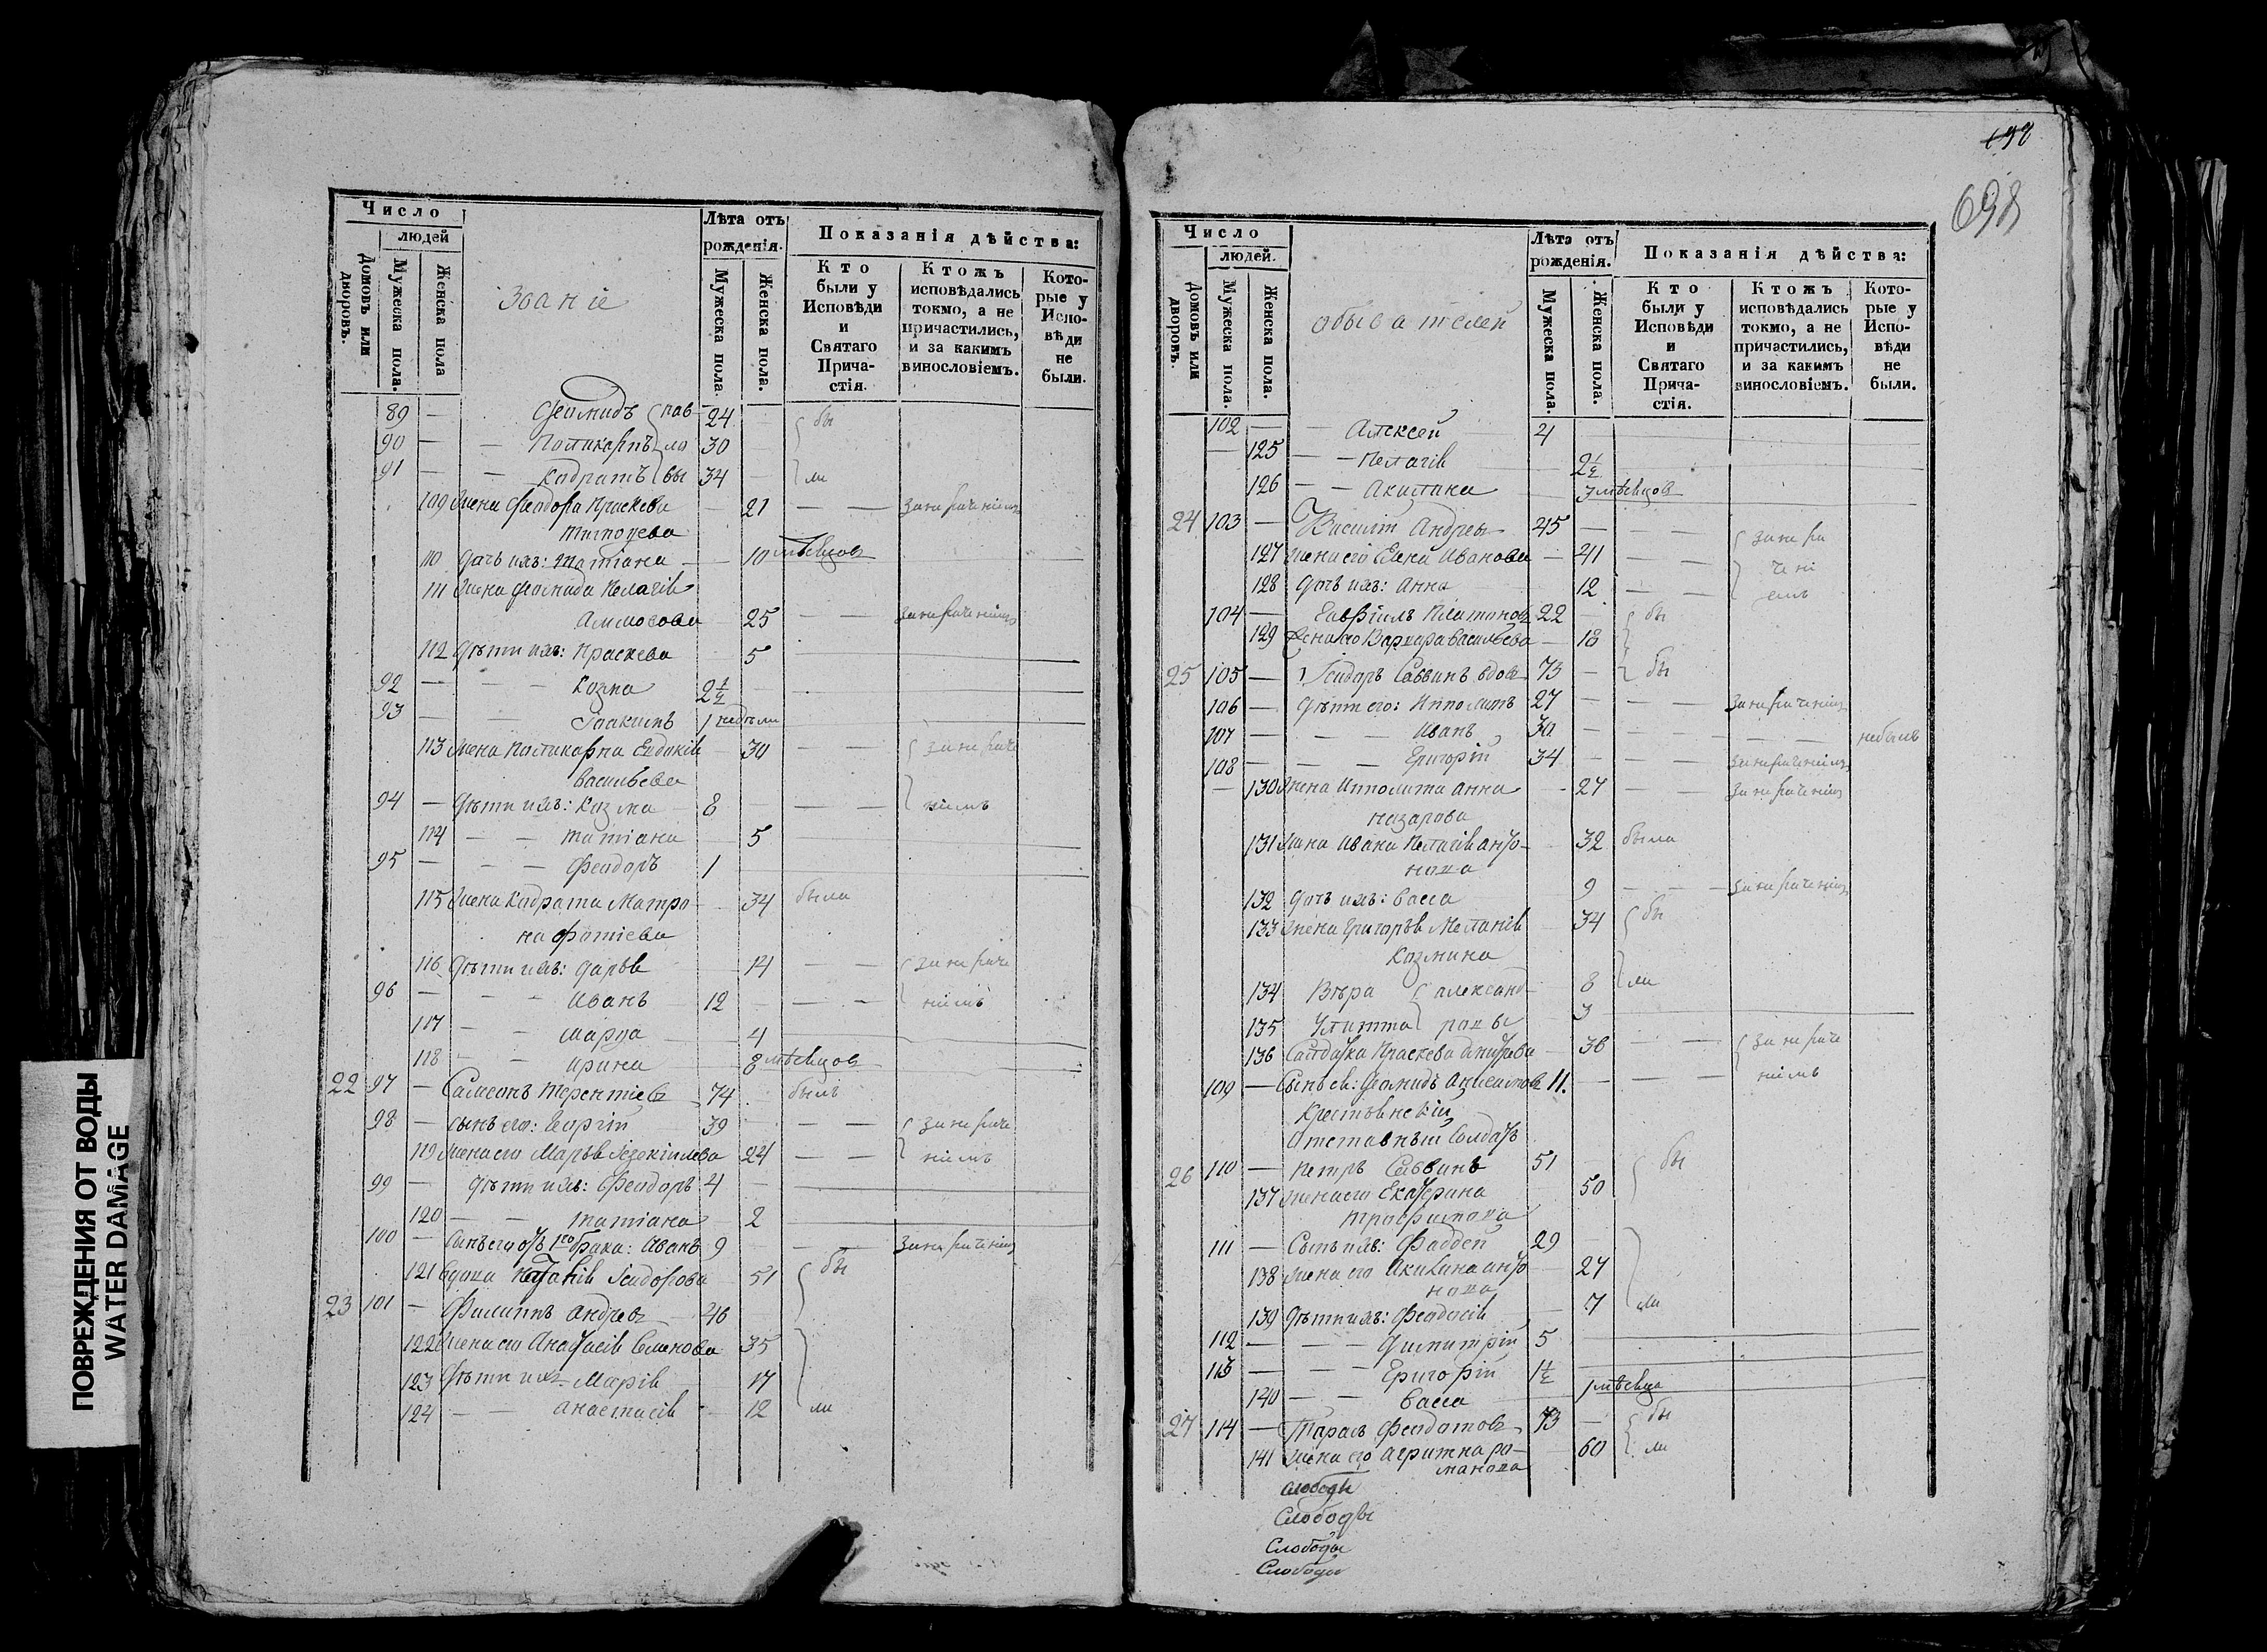 ПОВРЕЖДЕНИЯ ОТ ВОДЫ
WATER DAMAGE
Число
людей
Домовъ или дворовъ.
Мужеска пола.
Женска пола
Званіе
Лѣта отъ рожденія.
Мужеска пола.
Женска пола.
Показанія дѣйства:
Кто были у Исповѣди и Святаго Причастія.
Ктожъ исповѣдались токмо, а не причастились, и за какимъ винословіемъ.
Которые у Исповѣди не были.
89 — Леонидъ пав 24 — бы
90 — — Поликарпъ ло 30
91 — — Кодратъ вы 34 — ли
109 Жена Феодора Праскева — 21 — —
110 Дочь ихъ: Татіана — 10 мѣсяцов
111 Жена Леонида Пелагія
Аммосова 25 — —
112 Дѣти ихъ: Праскева 5
92 — — — Козма 2½
93 — — Іоакимъ 1 недѣли
113 Жена Поликарпа Евдокія — 30 — —
Васильева
94 — Дѣти ихъ: Козма 8 — — — ніемъ
114 — — Татіана — 5
95 — — — Феодоръ 1
115 Жена Кодрата Матро — 34 была
на Фотіева
116 Дѣти ихъ: Дарья — 14 — —
96 — — — Иванъ 12 — — — ніемъ
117 — — Марѳа — 4
118 — — Ирина — 8 мѣсяцов
22 97 — Самсонъ Терентіевъ 74 былъ
98 — сынъ его: Георгій 39 — — —
119 Жена его Марья Іезекіилева 24 — — ніемъ
99 — Дѣти ихъ: Феодоръ 4 —
120 — — Татіана — 2
100 — Сынъ его отъ 1го брака: Иванъ 9 — —
121 Вдова Наталія Ісидорова 51 бы
23 101 — Филиппъ Андреевъ 46
122 Жена его Анастасія Семенова 35
123 Дѣти ихъ Марія — 17
124 — — Анастасія — 12 ли
698
Число
людей.
Домовъ или дворовъ.
Мужеска пола.
Женска пола.
обывателей
Лѣта отъ рожденія.
Мужеска пола.
Женска пола.
Показанія дѣйства:
Кто были у Исповѣди и Святаго Причастія.
Ктожъ исповѣдались токмо, а не причастились, и за какимъ винословіемъ.
Которые у Исповѣди не были.
102 — — Алексей 4
125 — — Пелагія — 2½
126 — — Акилина — 7 мѣсяцов
24 103 — Василій Андреевъ 45 — —
127 Жена его Елена Иванова — 41 — —
128 Дочь ихъ: Анна 12 — —
104 — Гавріилъ Платоновъ 22 — бы
129 Жена его Варвара Васильева — 18
25 105 — Ісидоръ Саввинъ вдовъ 73 — бы
106 — Дѣти его: Ипполитъ 27 — — —
107 — — — Иванъ 30 — — — — небылъ
108 — — — Григорій 34 — — —
130 Жена Ипполита Анна — 27 — —
Назарова
131 Жена Ивана Пелагія Анто- 32 была
нова
132 Дочь ихъ: Васса 9 — —
133 Жена Григорья Меланія 34 бы
Козмина
134 Вѣра александ- 8 ли
135 Улитта ровы 3
136 Солдатка Праскева 36 — —
109 — Сынъ ея: Леонидъ 11. — — — ніемъ
Отставный Солдатъ
26 110 — Петръ Саввинъ 51 — бы
137 Жена его Екатерина 50
Трофимова
111 — Сынъ ихъ: Фаддей 29 —
138 Жена его Акилина Анто 27
нова
139 Дѣти ихъ: Феодосія — 7 ли
112 — — — Димитрій 5
113 — — — Григорій 1½
140 — — Васса 1 мѣсяца
27 114 — Тарасъ Феодотовъ 73 — бы
141 Жена его Агрипина Ро- 60 ли
манова
слободы
Слободы
Слободы
Слободы